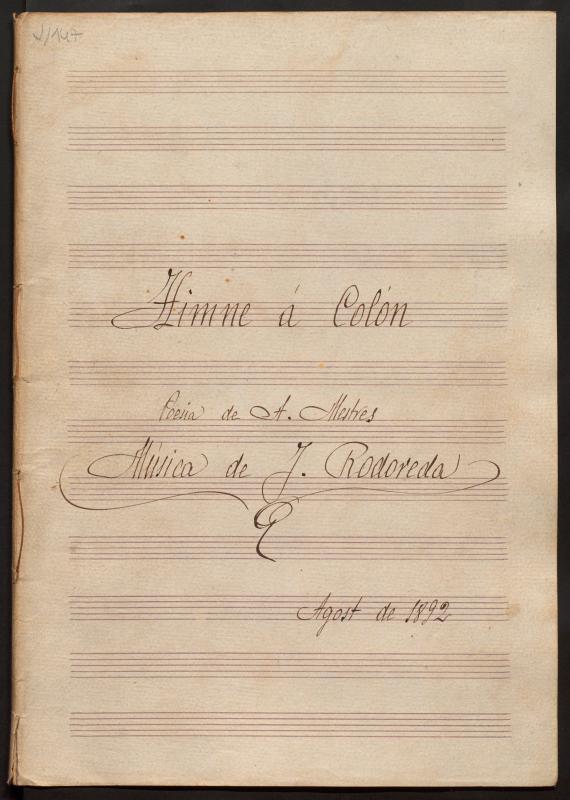 J/147
Himne á Colón
Poesia de A. Mestres
Música de J. Rodoreda
Agost de 1892